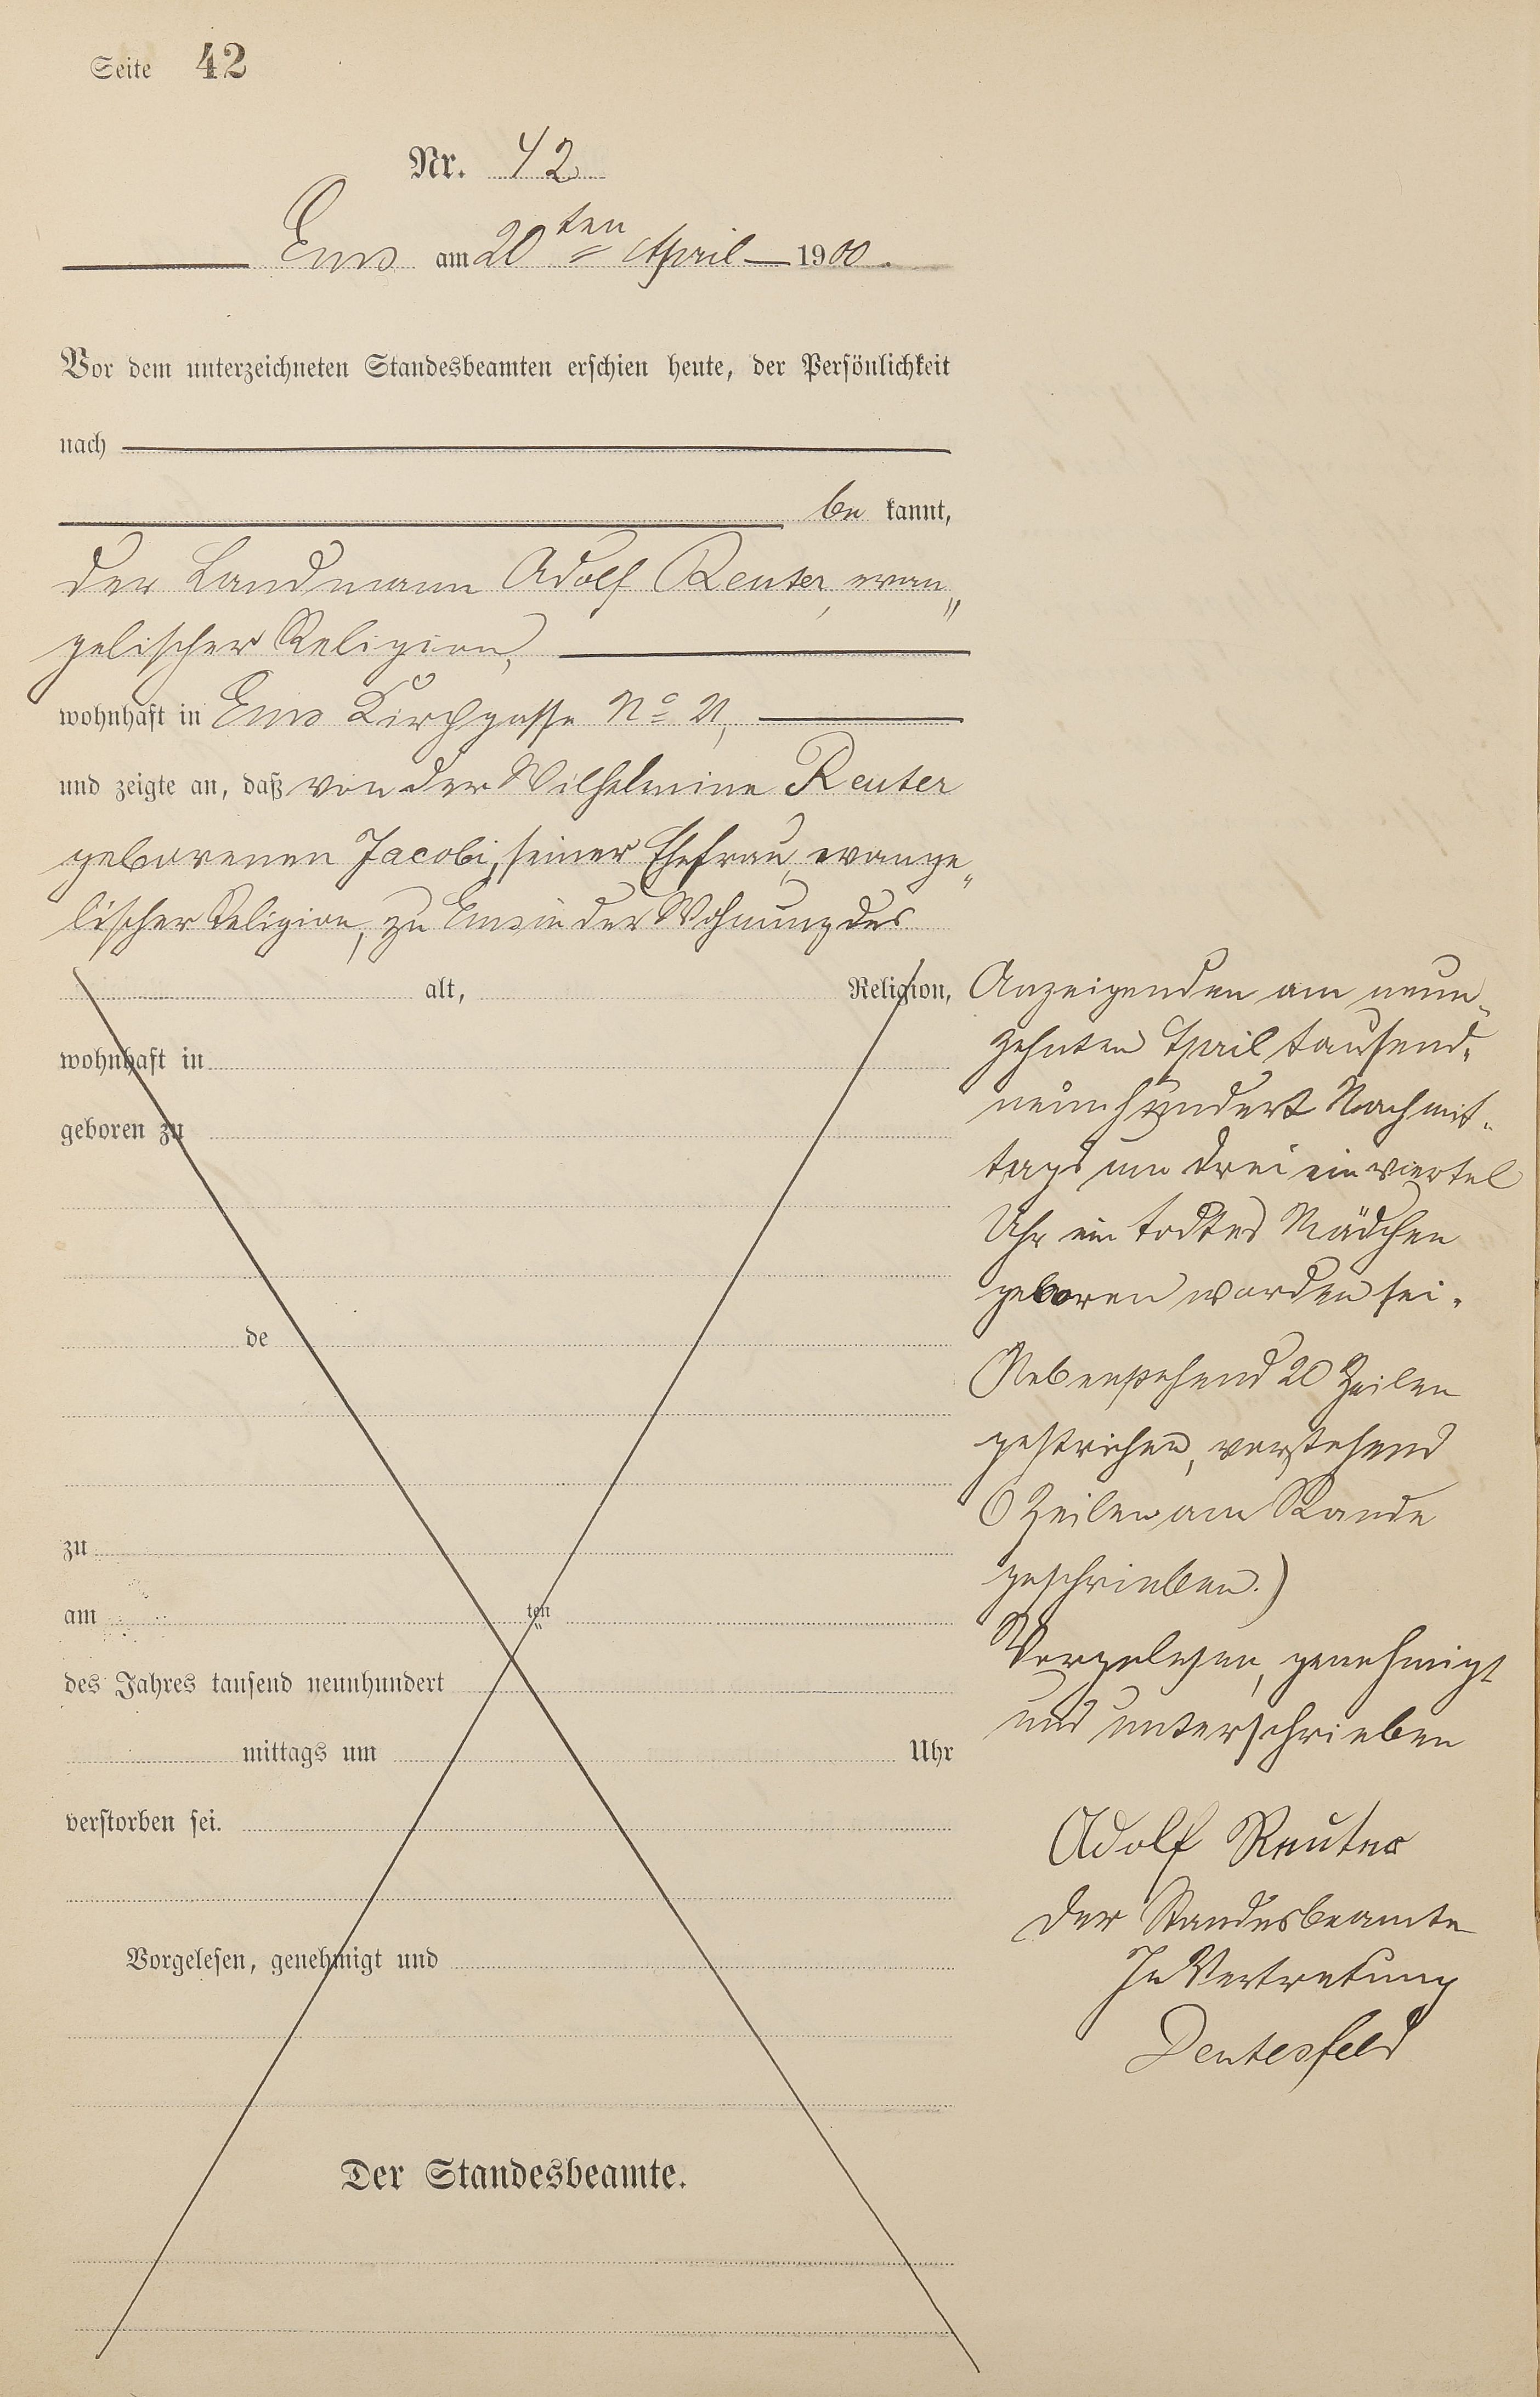 Seite 42
Nr. 42
Ems am 20ten April 1900.
Vor dem unterzeichneten Standesbeamten erschien heute, der Persönlichkeit
nach
be kannt,
der Landmann Adolf Reuter, evan„
gelischer Religion,
wohnhaft in Ems Kirchgasse No 21,
und zeigte an, daß von der Wilhelmine Reuter
geborenen Jacobi, seiner Ehefrau, evange„
lischer Religion, zu Ems in der Wohnung des
alt, Religion,
wohnhaft in
geboren zu
de
zu
am ten
des Jahres tausend neunhundert
mittags um Uhr
verstorben sei.
Vorgelesen, genehmigt und
Der Standesbeamte.
Anzeigenden am neun-
zehnten April tausend-
neunhundert Nachmit-
tags um drei ein viertel
Uhr ein todtes Mädchen
geboren worden sei.
Nebenstehend 20 Zeilen
gestrichen, vorstehend
6 Zeilen am Rande
geschrieben.)
Vorgelesen, genehmigt
und unterschrieben
Adolf Reuter
Der Standesbeamte
In Vertretung